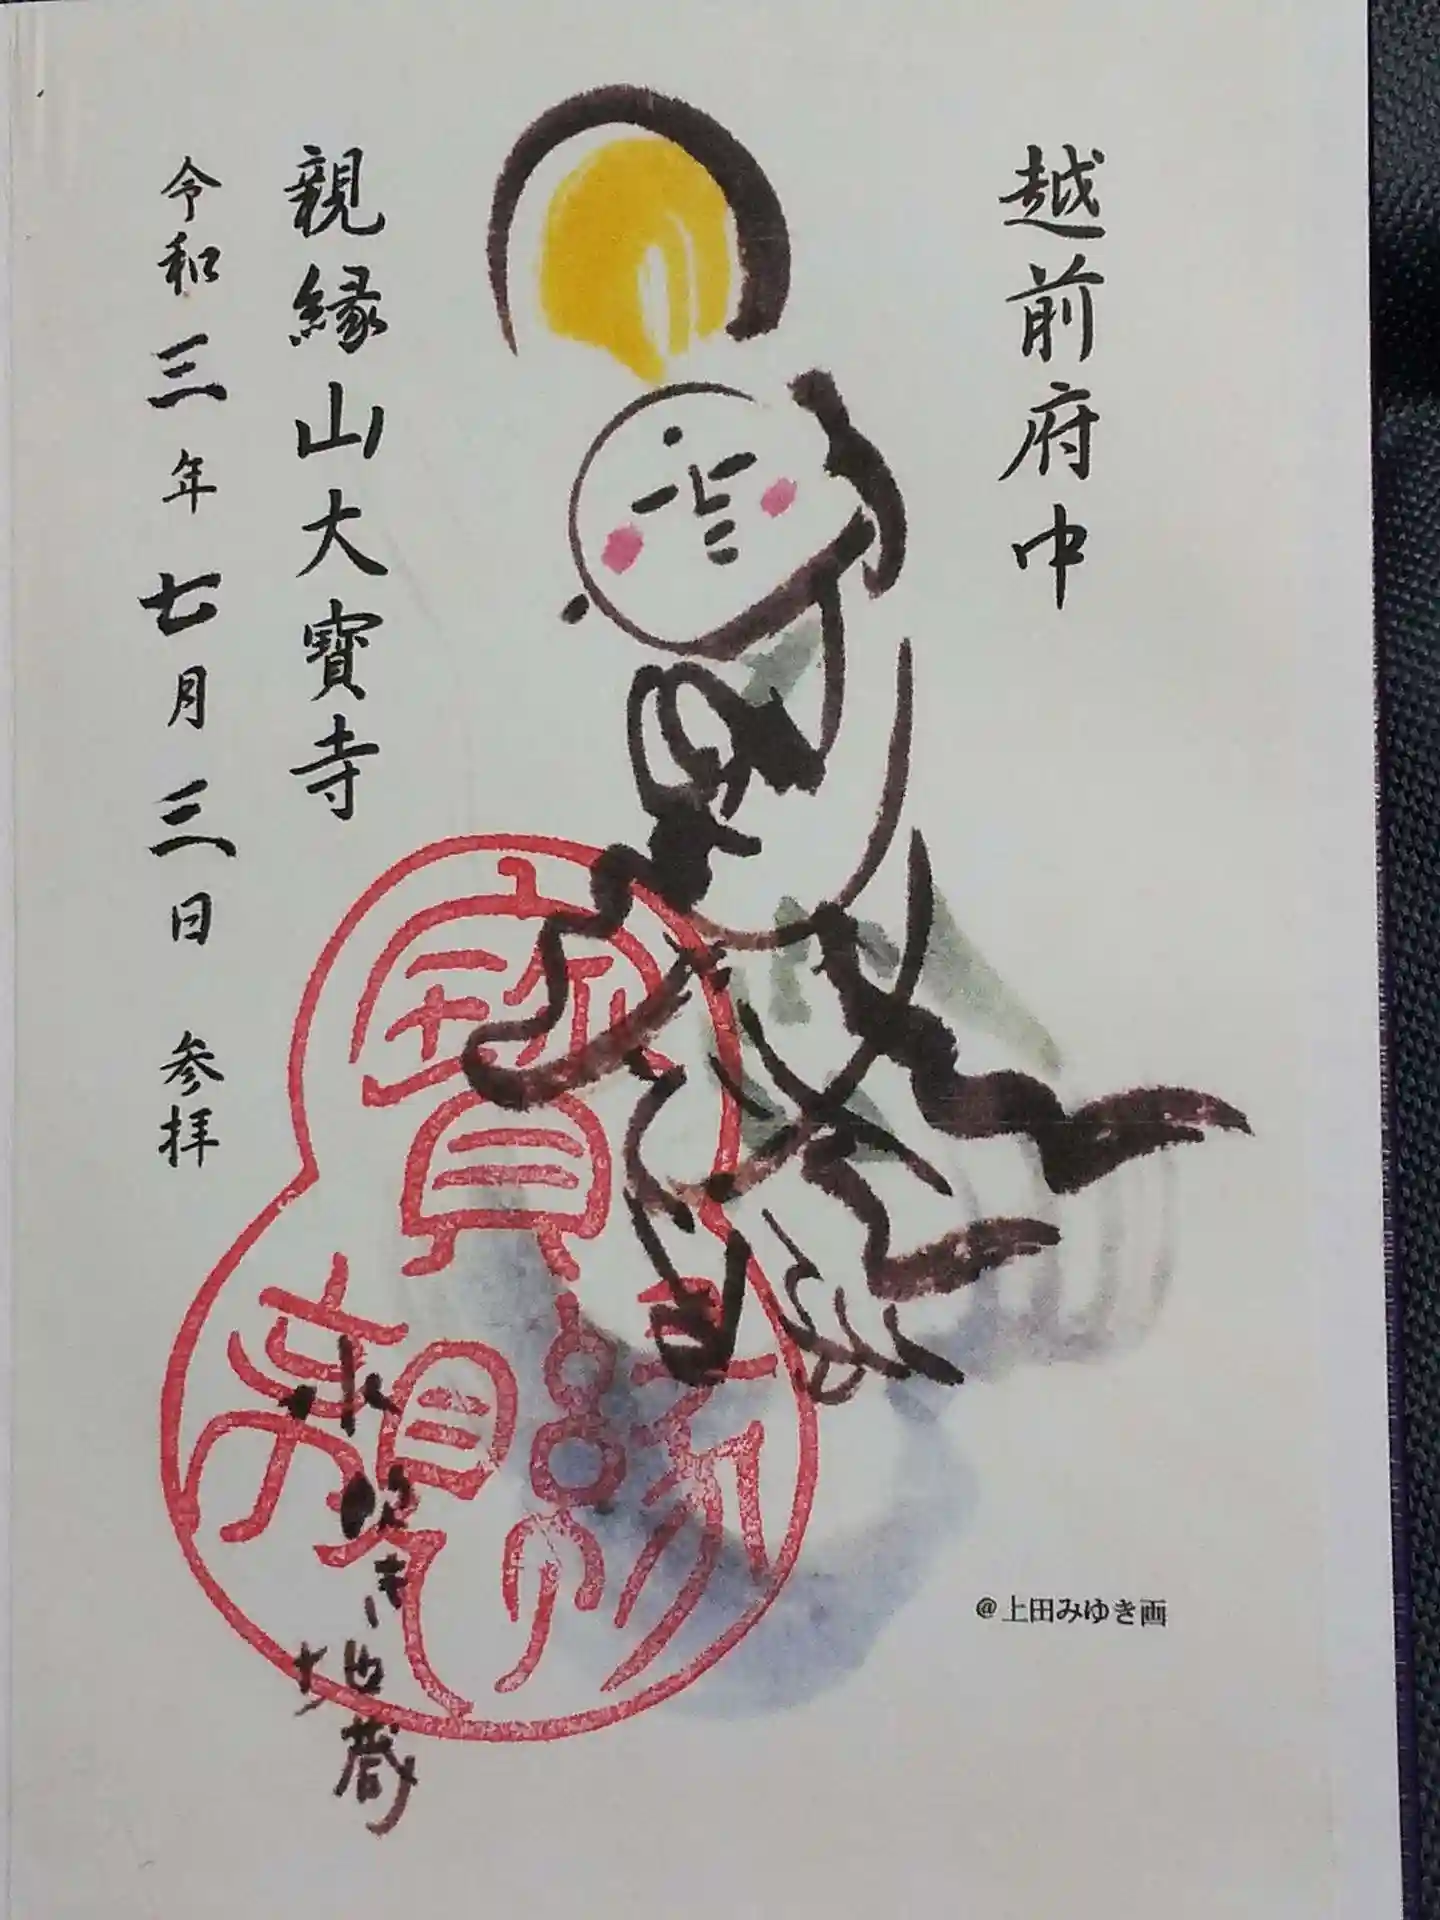 越前府中
親縁山大寳寺
令和三年七月三日 参拝
水吹き地蔵
@上田みゆき画